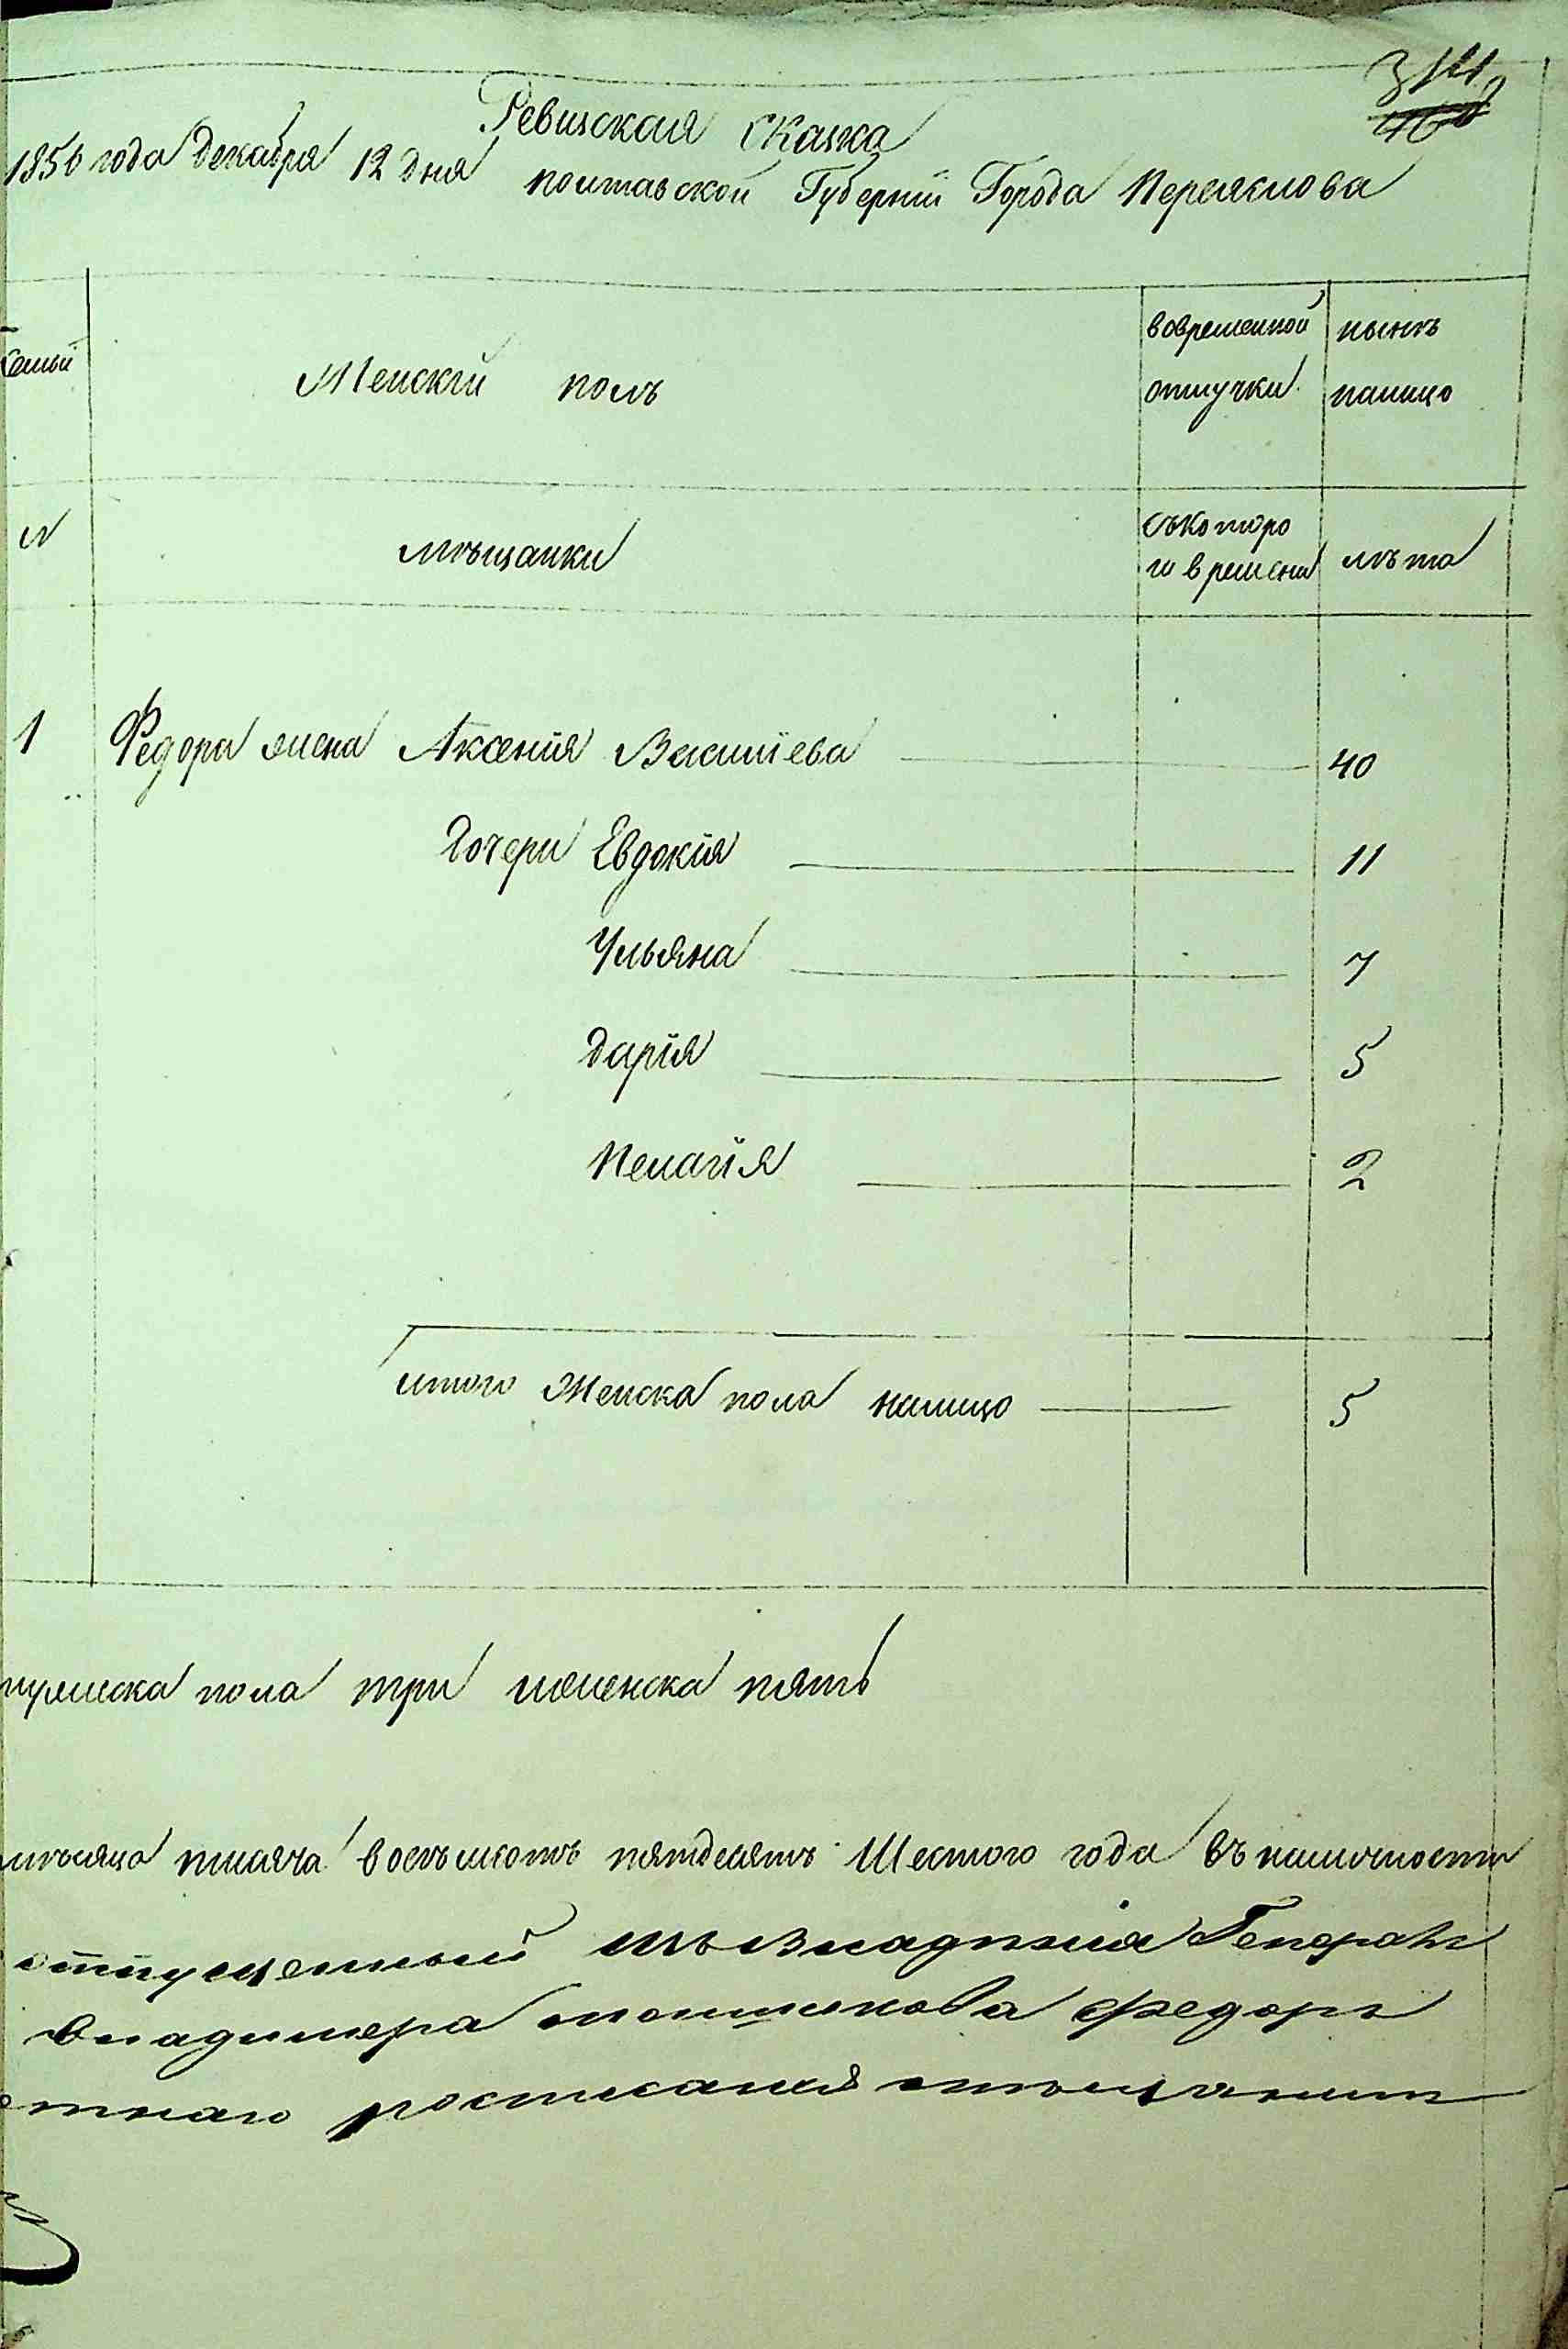 Ревиская скаска
1856 года декабря 12 дня полтавской Губернїи Города Переяслова
семьи
Женскїй полъ
вовременной
отлучки
нынѣ
налицо
N
мѣщанки
съкоторо
го времени
лѣта
1 Федора жена Аксенїя Василїева 40
Дочери Евдокїя 11
Ульяна 7
Дарїя 5
Пелагїя 2
итого Женска пола налицо 5
мужеска пола три иженска пять
мѣсяца тисяча восѣмсотъ пятдесятъ Шестого года въ наличности
отпущенный изъ Владѣнїя Генерала
Владимера Федоръ
росписанія